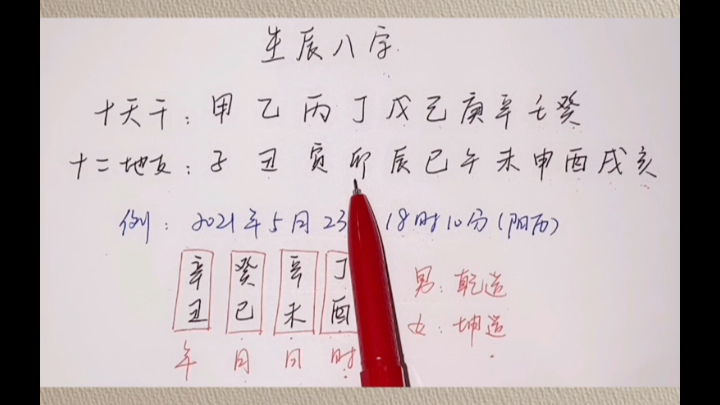 生辰八字
十天干：甲乙丙丁戊己庚辛壬癸
十二地支：子丑寅卯辰巳午未申酉戌亥
例：2021年5月23 18时10分(阳历)
辛丑 癸巳 辛未 丁酉
年 月 日 时
男：乾造
女：坤造